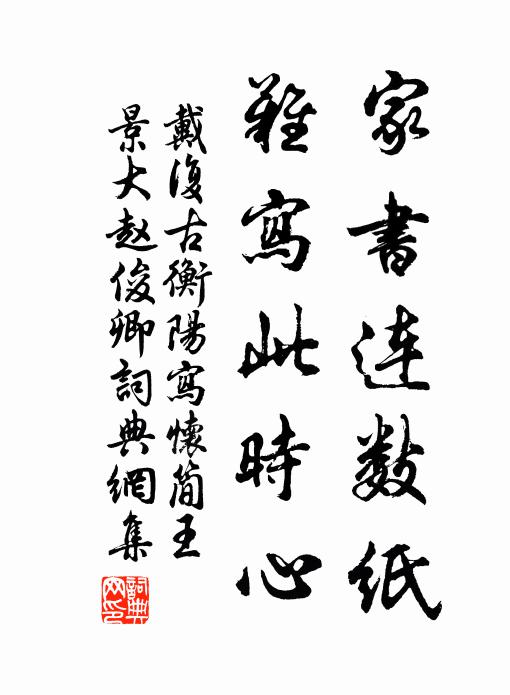 家書連数紙
難寫此時心
戴復古衡陽寫懷簡王
景大赵俊卿詞典網集
詞典网印